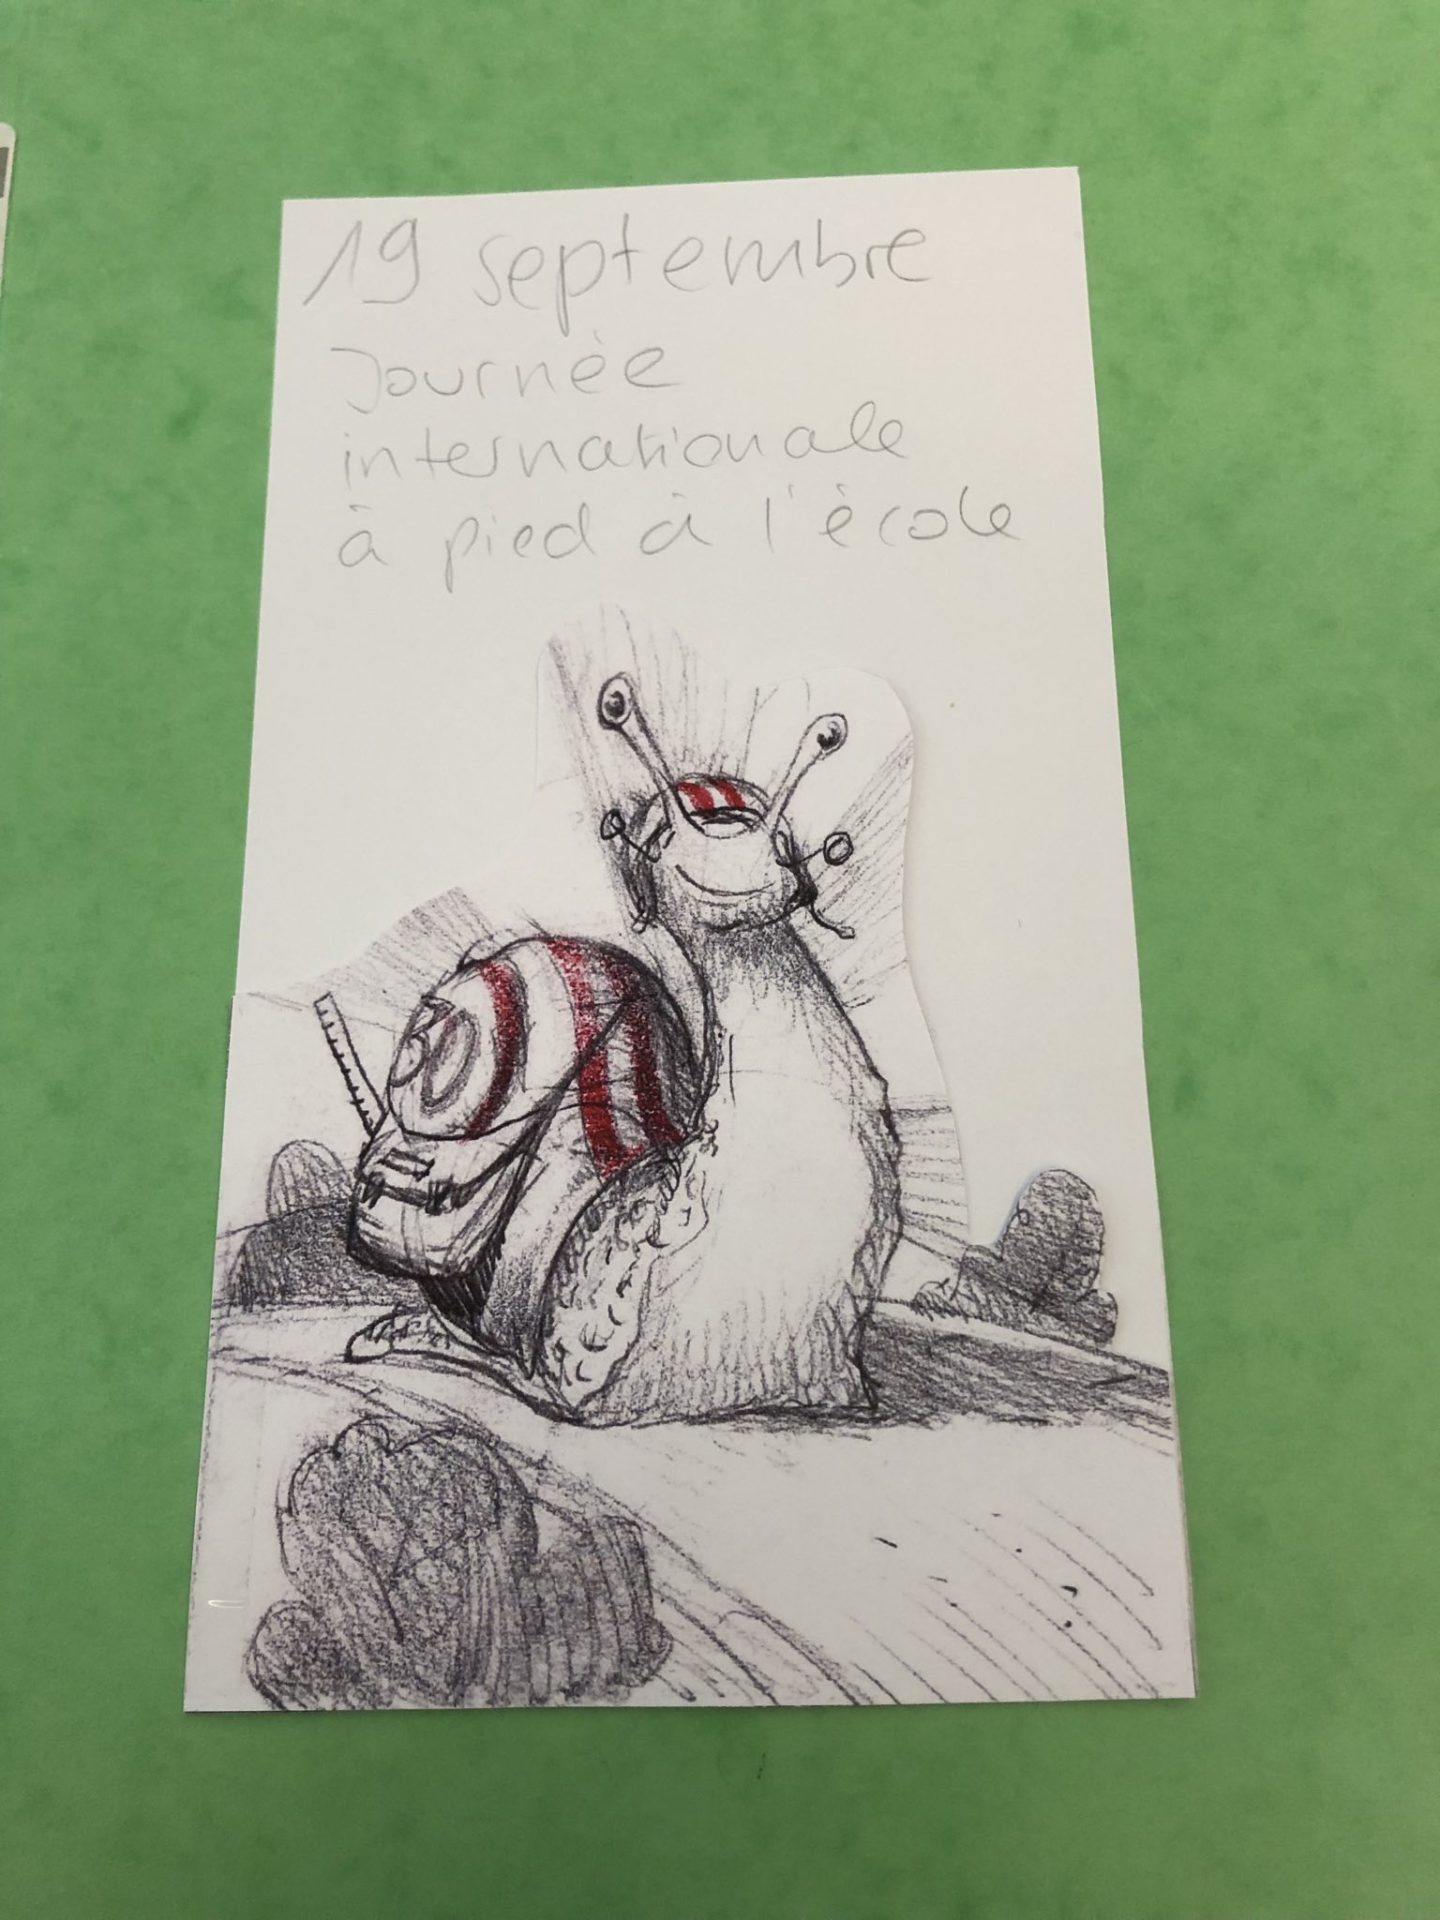 19 septembre
Journée
internationale
à pied à l'école
30